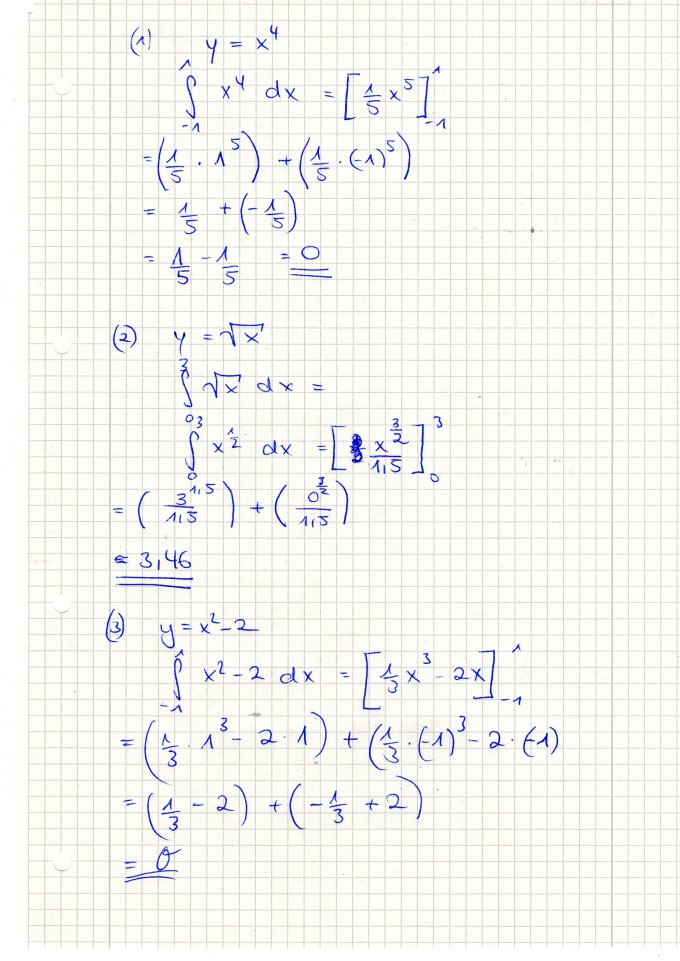 (1) y = x⁴
∫₋₁¹ x⁴ dx = [1/5 x⁵]₋₁¹
= (1/5 · 1⁵) + (1/5 · (-1)⁵)
= 1/5 + (-1/5)
= 1/5 - 1/5 = 0
(2) y = √x
∫₀³ √x dx =
∫₀³ x^(1/2) dx = [x^(3/2)/1,5]₀³
= (3^(1,5)/1,5) + (0^(3/2)/1,5)
= 3,46
(3) y = x² - 2
∫₋₁¹ x² - 2 dx = [1/3 x³ - 2x]₋₁¹
= (1/3 · 1³ - 2 · 1) + (1/3 · (-1)³ - 2 · (-1)
= (1/3 - 2) + (-1/3 + 2)
= 0